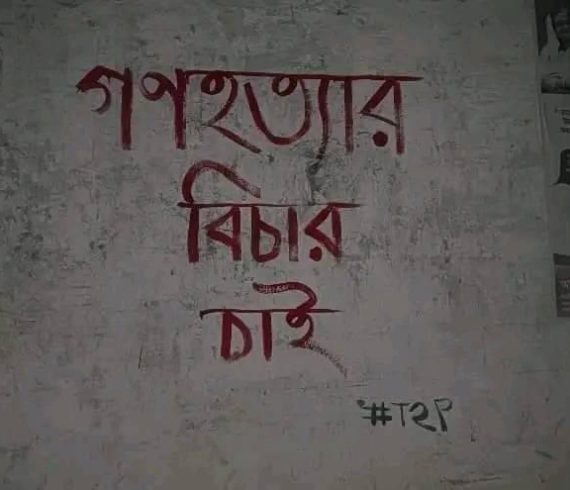 গণহত্যার
বিচার
চাই
#T2P